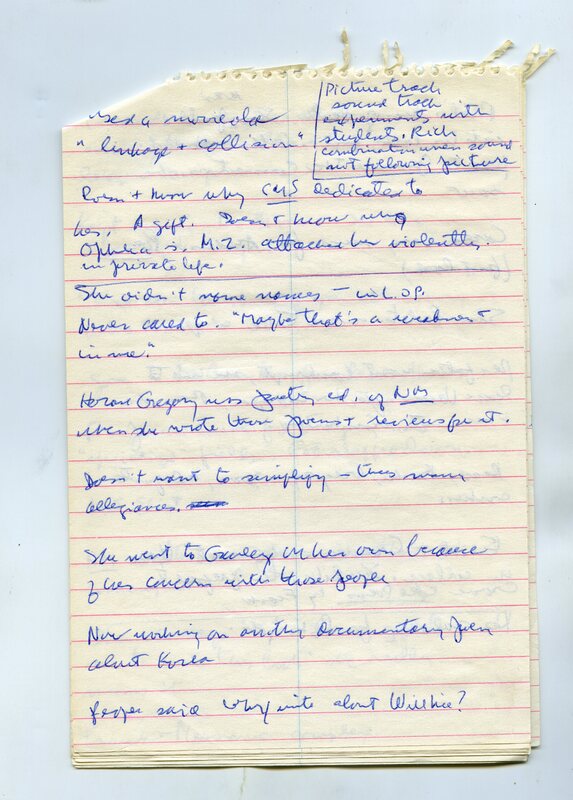 used a moviola
"linkage + collision"
Picture track
sound track
experiments with
students. Rich
combination when sound
not following picture
Doesn't know why CMS dedicated to
her. A gift. Doesn't know why
Ophelia is. M.Z. attacked her violently
in private life.
She didn't name names — in L.OP.
Never cared to. "Maybe that's a weakness
in me."
Horace Gregory was poetry ed. of NM
when she wrote those poems + reviews for it.
Doesn't want to simplify — were many
allegiances.
She went to Gauley on her own because
of her concern with those people
Now working on another documentary poem
about Korea
People said why write about Willkie?